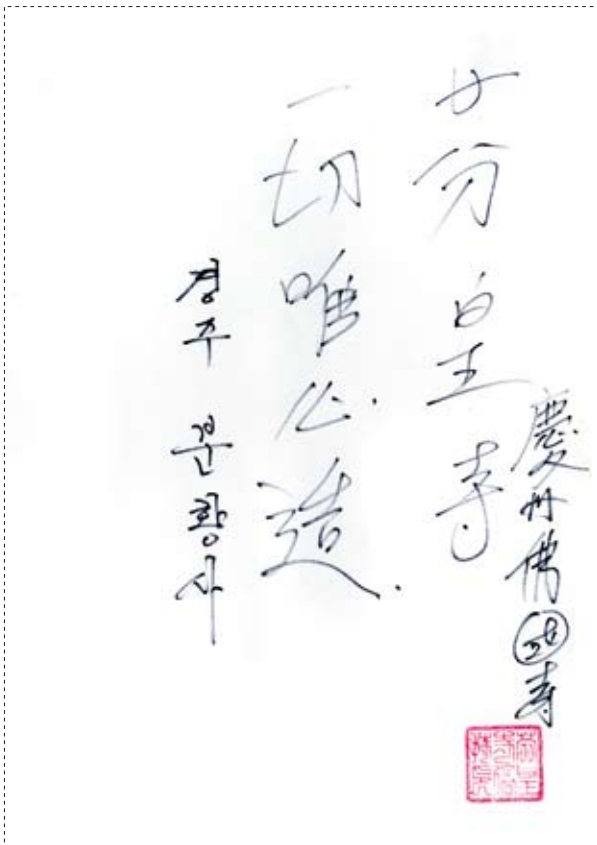 慶州佛國寺
芬皇寺
一切唯心造
경주 분황사